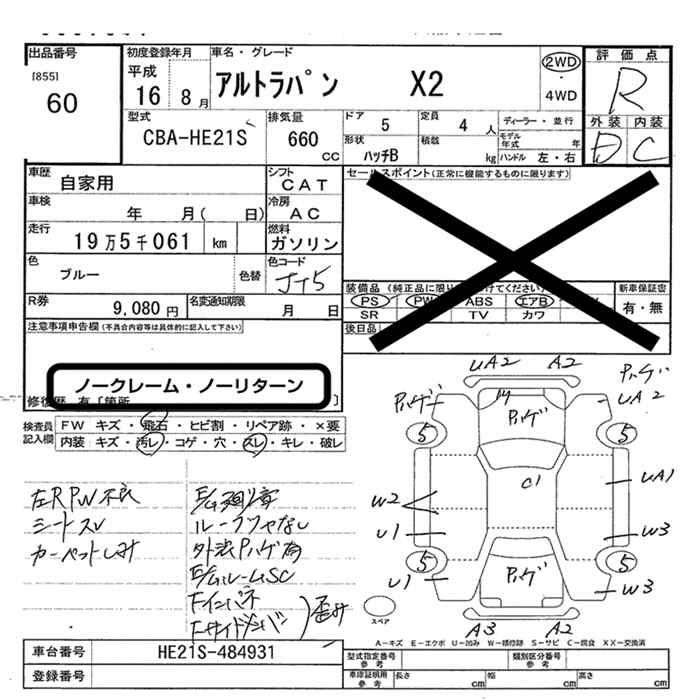 出品番号
[855]
60
初度登録年月
平成
16 8月
車名・グレード
アルトラパン X2
2WD
・
4WD
評価点
R
外装 内装
D C
型式
CBA-HE21S
排気量
660
cc
ドア 5
定員 4 人
形状
ハッチB
積載
kg
ディーラー・並行
モデル年式 年
ハンドル 左・右
車歴
自家用
シフト
CAT
車検
年 月( 日)
冷房
AC
走行
19万5千061 km
燃料
ガソリン
色
ブルー
色替
色コード
JT5
R券
9,080円
名変通知期限
月 日
セールスポイント(正常に機能するものに限ります)
PS PW ABS エアB
SR TV カワ
新車保証書
有・無
後日品
注意事項申告欄(不具合内容等は具体的に記入して下さい)
ノークレーム・ノーリターン
検査員
記入欄
FW キズ・飛石・ヒビ割・リペア跡・×要
内装 キズ・汚レ・コゲ・穴・スレ・キレ・破レ
左RPW不良
シートスレ
カーペットシミ
ルーフツヤなし
E/ルームSC
Fインパネ
UA2 A2
Pハゲ
UA2
Pハゲ
Pハゲ
5 5
C1
UA1
W2
U1
W3
5 5
U1
Pハゲ
W3
A3 A2
スペア
A-キズ E-エクボ U-凹み W-補修跡 S-サビ C-腐食 XX-交換済
車台番号
HE21S-484931
登録番号
型式指定番号
参考
類別区分番号
参考
車庫証明用
参考
長さ cm
幅 cm
高さ cm